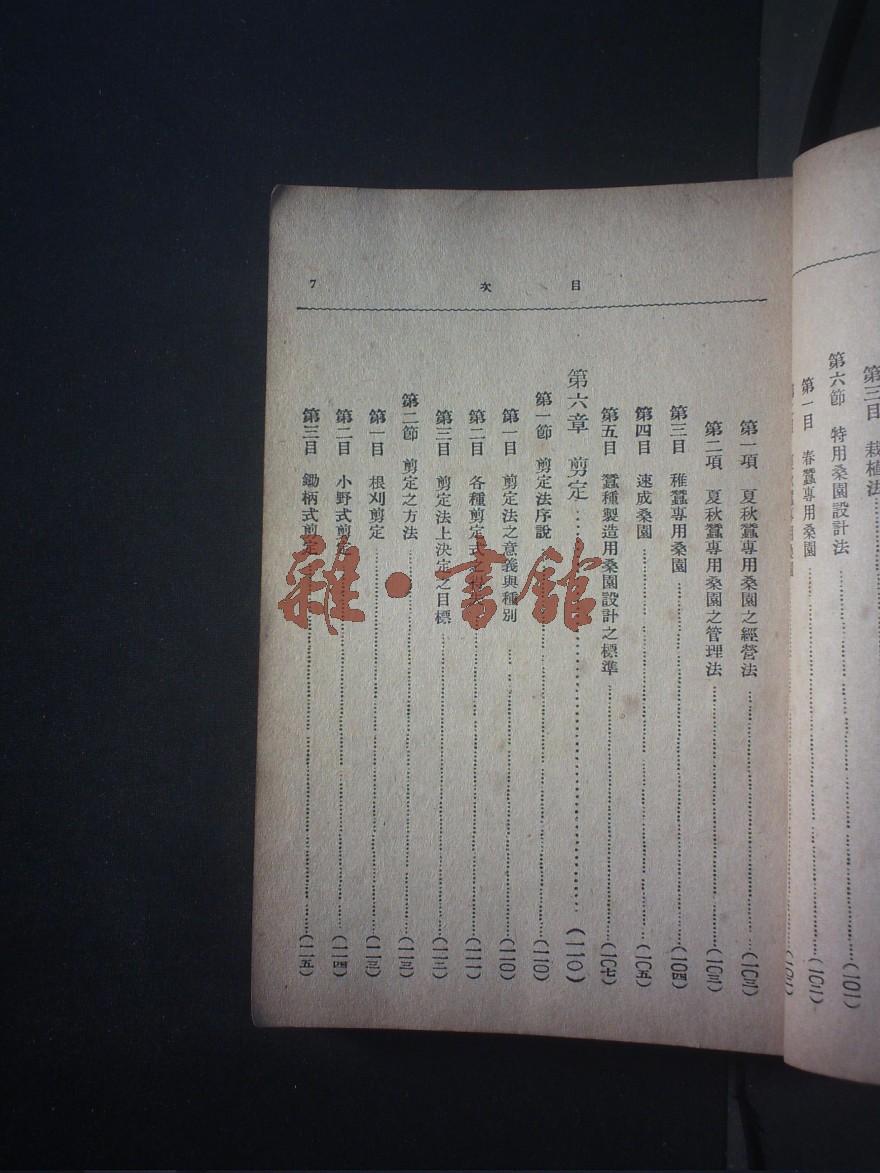 第三目 栽植法
第六節 特用桑園設計法……(一〇一)
第一目 春蠶專用桑園……(一〇二)
目次
7
第一項 夏秋蠶專用桑園之經營法……(一〇三)
第二項 夏秋蠶專用桑園之管理法……(一〇三)
第三目 稚蠶專用桑園……(一〇四)
第四目 速成桑園……(一〇五)
第五目 蠶種製造用桑園設計之標準……(一〇七)
第六章 剪定……(一一〇)
第一節 剪定法序說……(一一〇)
第一目 剪定法之意義與種別……(一一〇)
第二目 各種剪定式之……(一一一)
第三目 剪定法上決定之目標……(一一二)
第二節 剪定之方法……(一一三)
第一目 根刈剪定……(一一三)
第二目 小野式剪定……(一一四)
第三目 鋤柄式剪定……(一一五)
雜·書館